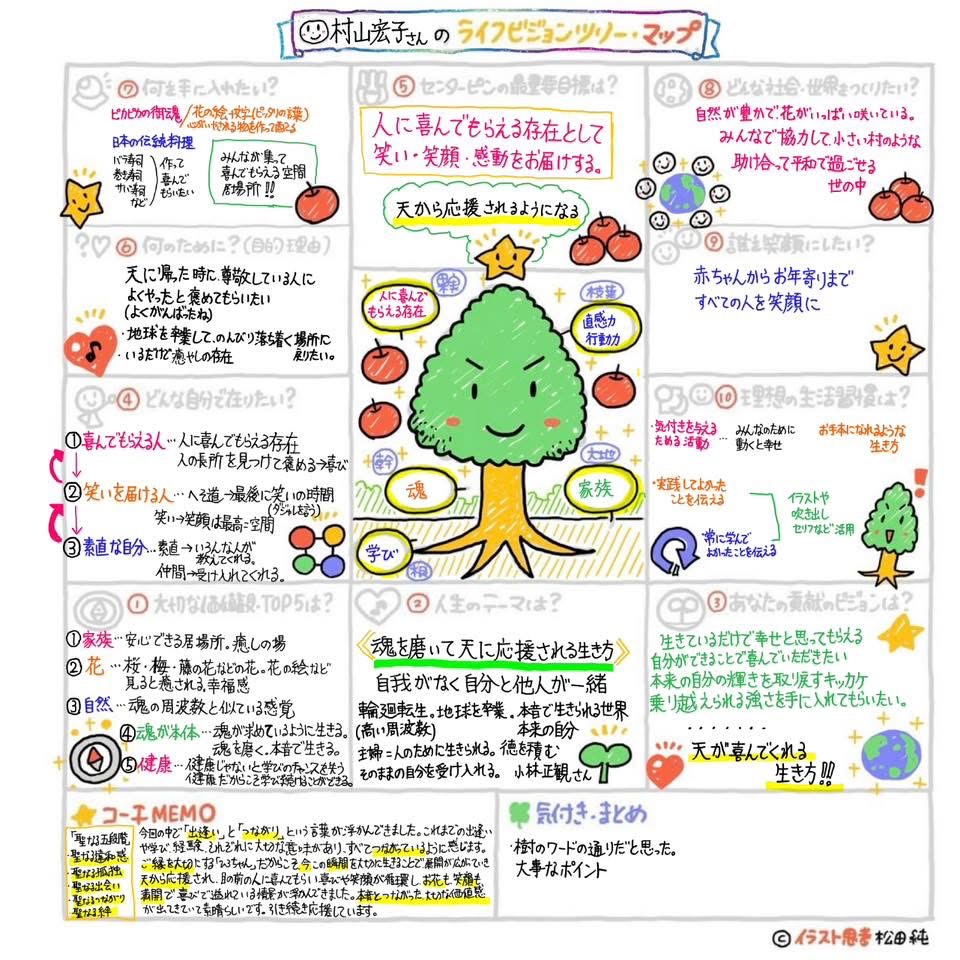 村山宏子さんのライフビジョンツリー・マップ
⑦何を手に入れたい?
ピカピカの御魂/花の絵+文字(ピッタリの言葉)
心がいやされる物を作って売る
日本の伝統料理
バラ寿司
巻き寿司
サバ寿司
など
作って
喜んで
もらいたい
みんなが集って
喜んでもらえる空間
居場所!!
⑤センターピンの最重要目標は?
人に喜んでもらえる存在として
笑い・笑顔・感動をお届けする。
天から応援されるようになる
⑧どんな社会・世界をつくりたい?
自然が豊かで、花がいっぱい咲いている。
みんなで協力して、小さい村のような
助け拾って平和で過ごせる
世の中
⑥何のために?(目的・理由)
天に帰った時に、尊敬している人に
よくやったと褒めてもらいたい
(よくがんばったね)
・地球を卒業して、のんびり落ち着く場所に
戻りたい。
・いるだけで癒やしの存在
果実
人に喜んで
もらえる存在
枝葉
直感力
行動力
幹
魂
大地
家族
学び
根
⑨誰を笑顔にしたい?
赤ちゃんからお年寄りまで
すべての人を笑顔に
④どんな自分で在りたい?
①喜んでもらえる人…人に喜んでもらえる存在
人の長所を見つけて褒める→喜び
②笑いを届ける人…へそ道→最後に笑いの時間
(ダジャレを言う)
笑い→笑顔は最高な空間
③素直な自分…素直→いろんな人が
教えてくれる。
仲間→受け入れてくれる。
⑩理想の生活習慣は?
・気付きを与える
ための活動…
みんなのために
動くと幸せ
お手本になれるような
生き方
・実践してよかった
ことを伝える
イラストや
吹き出し
セリフなど活用
・常に学んで
よかったことを伝える
①大切な価値観・TOP5は?
①家族…安心できる居場所。癒しの場
②花…桜・梅・藤の花などの花。花の絵など
見ると癒される。幸福感
③自然…魂の周波数と似ている感覚
④魂が本体…魂が求めているように生きる。
魂を磨く。本音で生きる。
⑤健康…健康じゃないと学びのチャンスを失う
健康だからこそ学び続けることができる。
②人生のテーマは?
《魂を磨いて天に応援される生き方》
自我がなく自分と他人が一緒
輪廻転生。地球を卒業。本音で生きられる世界
(高い周波数) 本来の自分
主婦=人のために生きられる。徳を積む
そのままの自分を受け入れる。小林正観さん
③あなたの貢献のビジョンは?
生きているだけで幸せと思ってもらえる
自分ができることで喜んでいただきたい
本来の自分の輝きを取り戻すキッカケ
乗り越えられる強さを手に入れてもらいたい。
・・・・・・・
天が喜んでくれる
生き方!!!
コーチMEMO
「聖なる五段階」
・聖なる違和感
・聖なる孤独
・聖なる出会い
・聖なるつながり
・聖なる絆
今回の中で「出逢い」と「つながり」という言葉が浮かんできました。これまでの出逢い
や学び、経験、それぞれに大切な意味があり、すべてつながっているように感じます。
ご縁を大切にする「ひろちゃん」だからこそ、今この瞬間を大切に生きることで展開が広がっていき
天から応援され、目の前の人に喜んでもらい、喜びや笑顔が循環し、お花も笑顔も
満開で喜びで溢れている情景が浮かんできました。本音とつながった大切な価値感
が出てきていて素晴らしいです。引き続き応援しています。
気付き・まとめ
・樹のワードの通りだと思った。
大事なポイント
©イラスト思考 松田純